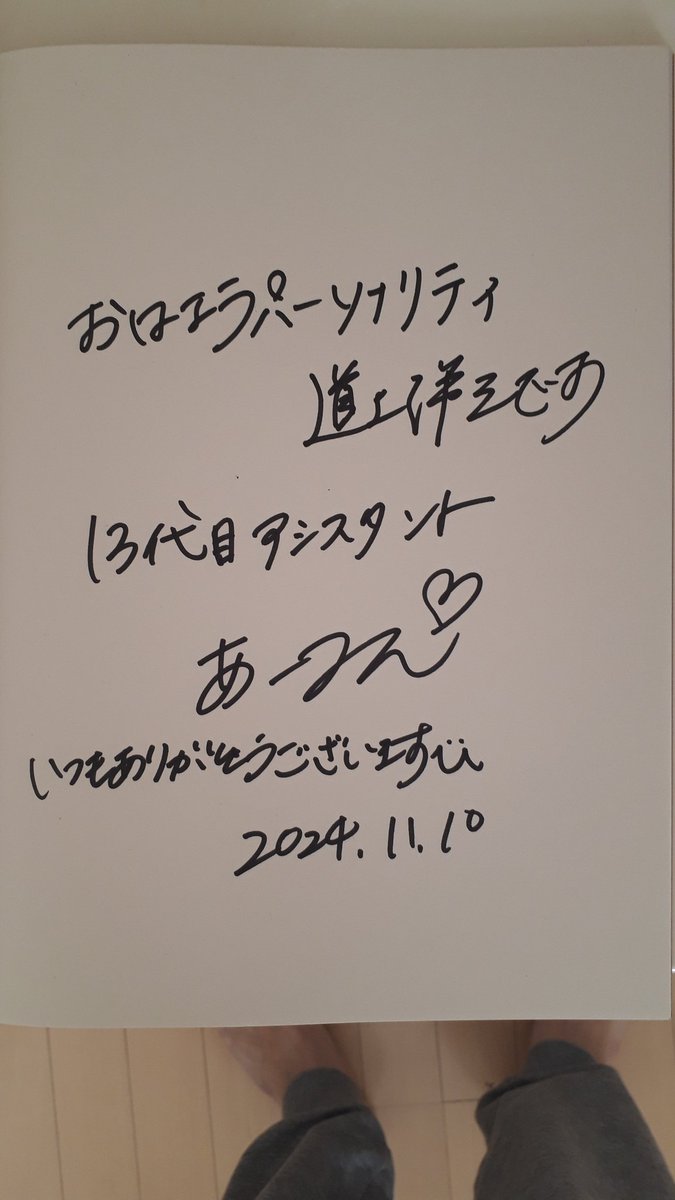 おはエラパーソナリティ
道上洋三です
13代目アシスタント
あーみん♡
いつもありがとうございます
2024.11.10